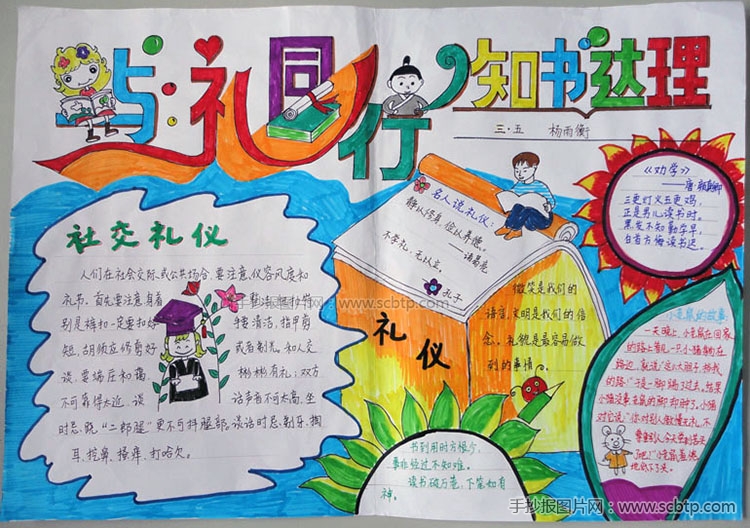 与礼同行
知书达理
三·五 杨雨衡
社交礼仪
人们在社会交际或公共场合,要注意仪容风度和
礼节。首先要注意身着
别是裤扣一定要扣好
短,胡须应修剪好
谈,要端庄和蔼
不可靠得太近,谈
时忌跷“二郎腿”更不可抖腿部。谈话时忌剔牙、掏
耳、挖鼻、搔痒、打哈欠。
手要清洁,指甲剪
或者制光。和人交
彬彬有礼;双方
话声音不可太高,坐
名人说礼仪:
静以修身,俭以养德。
——诸葛亮
不学礼,无以立。
——孔子
礼仪
微笑是我们的
语言,文明是我们的信
念。礼貌是最容易做
到的事情。
《劝学》
——唐·颜真卿
三更灯火五更鸡,
正是男儿读书时。
黑发不知勤学早,
白首方悔读书迟。
小老鼠的故事
一天晚上,小老鼠在回家
的路上看见一只小猫躺在
路边,就说:“这小太胆子,挡我
的路!”于是一脚踢了过去。结果
小猫没事,老鼠的脚却肿了。小猫
对它说:“你对别人傲慢无礼,不
地低下了头。
书到用时方恨少,
事非经过不知难。
读书破万卷,下笔如有
神。
手抄报图片网:www.scbtp.com
手抄报图片网:www.scbtp.com